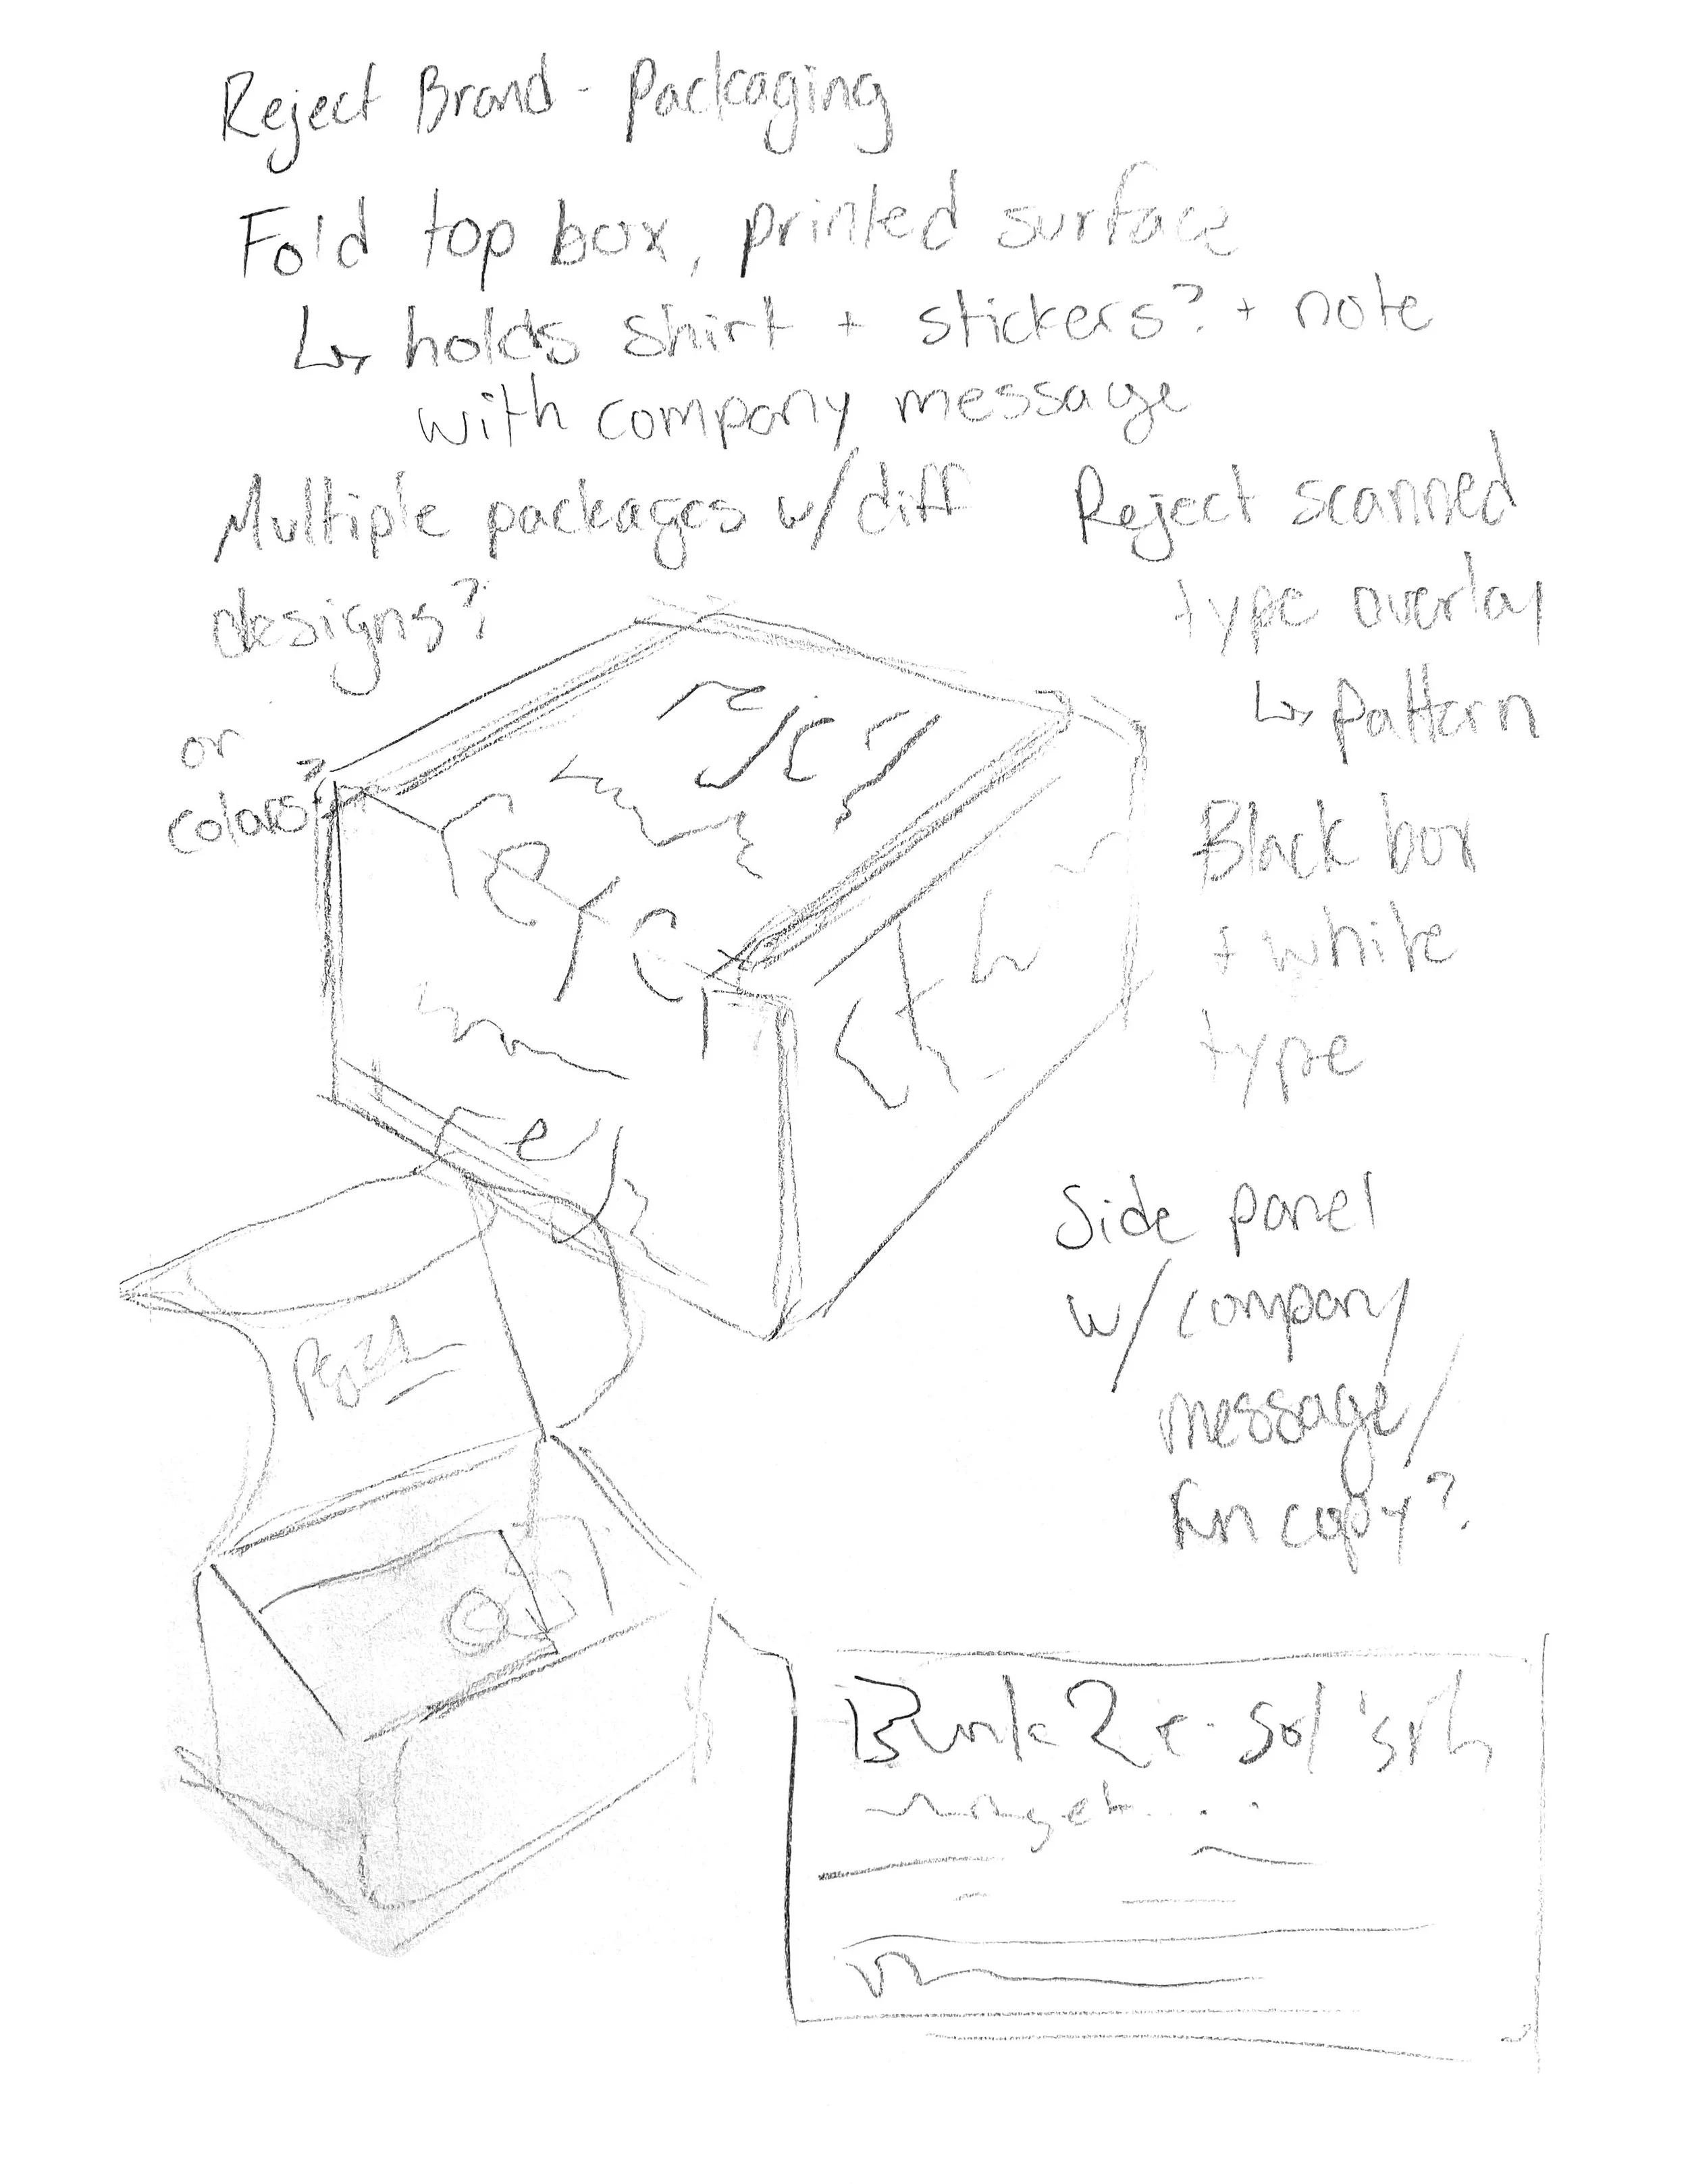 Reject Brand - Packaging
Fold top box, printed surface
↳ holds shirt + stickers? + note
with company message
Multiple packages w/ diff
designs?
or
colors?
Reject scanned
type overlay
↳ pattern
Black box
+ white
type
reject
rejec
rej
Side panel
w/ company
message/
fun copy?